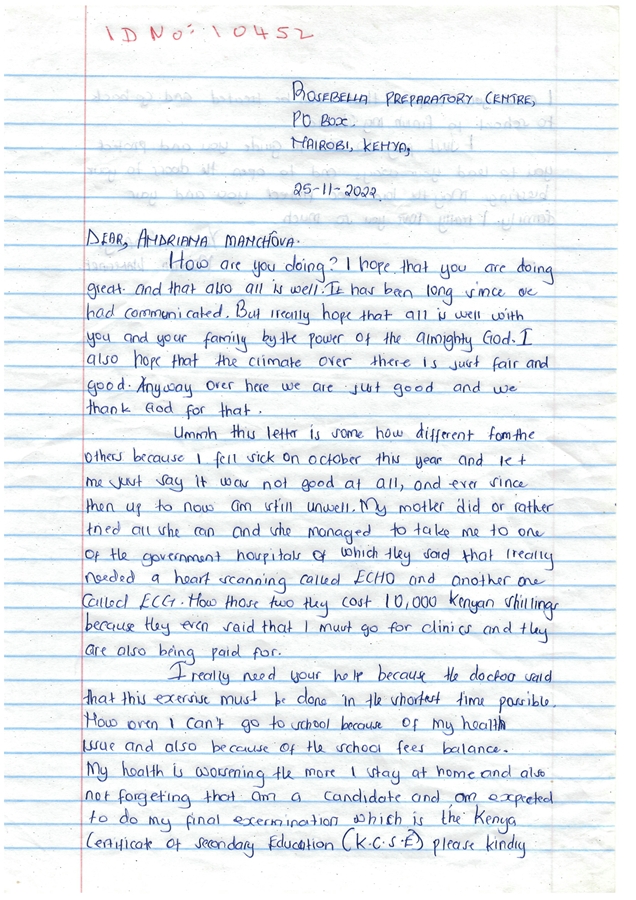 ID No: 10452
ROSEBELLA PREPARATORY CENTRE,
PO BOX
NAIROBI, KENYA,
25-11-2022.
DEAR, ANDRIANA MANCHOVA.
How are you doing? I hope that you are doing
great and that also all is well. It has been long since we
had communicated. But I really hope that all is well with
you and your family by the power of the almighty God. I
also hope that the climate over there is just fair and
good. Anyway over here we are just good and we
thank God for that.
Ummh this letter is some how different fom the
others because I fell sick on october this year and let
me just say it was not good at all, and ever since
then up to now am still unwell. My mother did or rather
tried all she can and she managed to take me to one
of the government hospitals of which they said that I really
needed a heart scanning called ECHO and another one
called ECG. Now those two they cost 10,000 Kenyan shillings
because they even said that I must go for clinics and they
are also being paid for.
I really need your help because the doctor said
that this exersise must be done in the shortest time possible.
Now even I can't go to school because of my health
issue and also because of the school fees balance.
My health is worsening the more I stay at home and also
not forgeting that am a candidate and am expected
to do my final exermination which is the Kenya
Certificate of secondary Education (K.C.S.E) please kindly